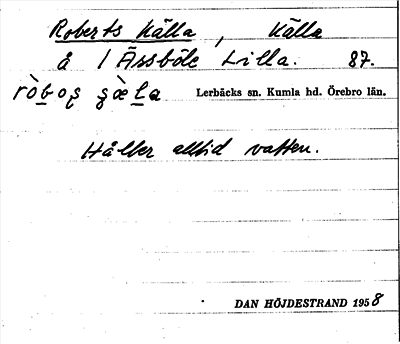 Roberts Källa, Källa
å 1 Årsböle Lilla. 87.
Lerbäcks sn. Kumla hd. Örebro län.
Håller alltid vatten.
DAN HÖJDESTRAND 1958